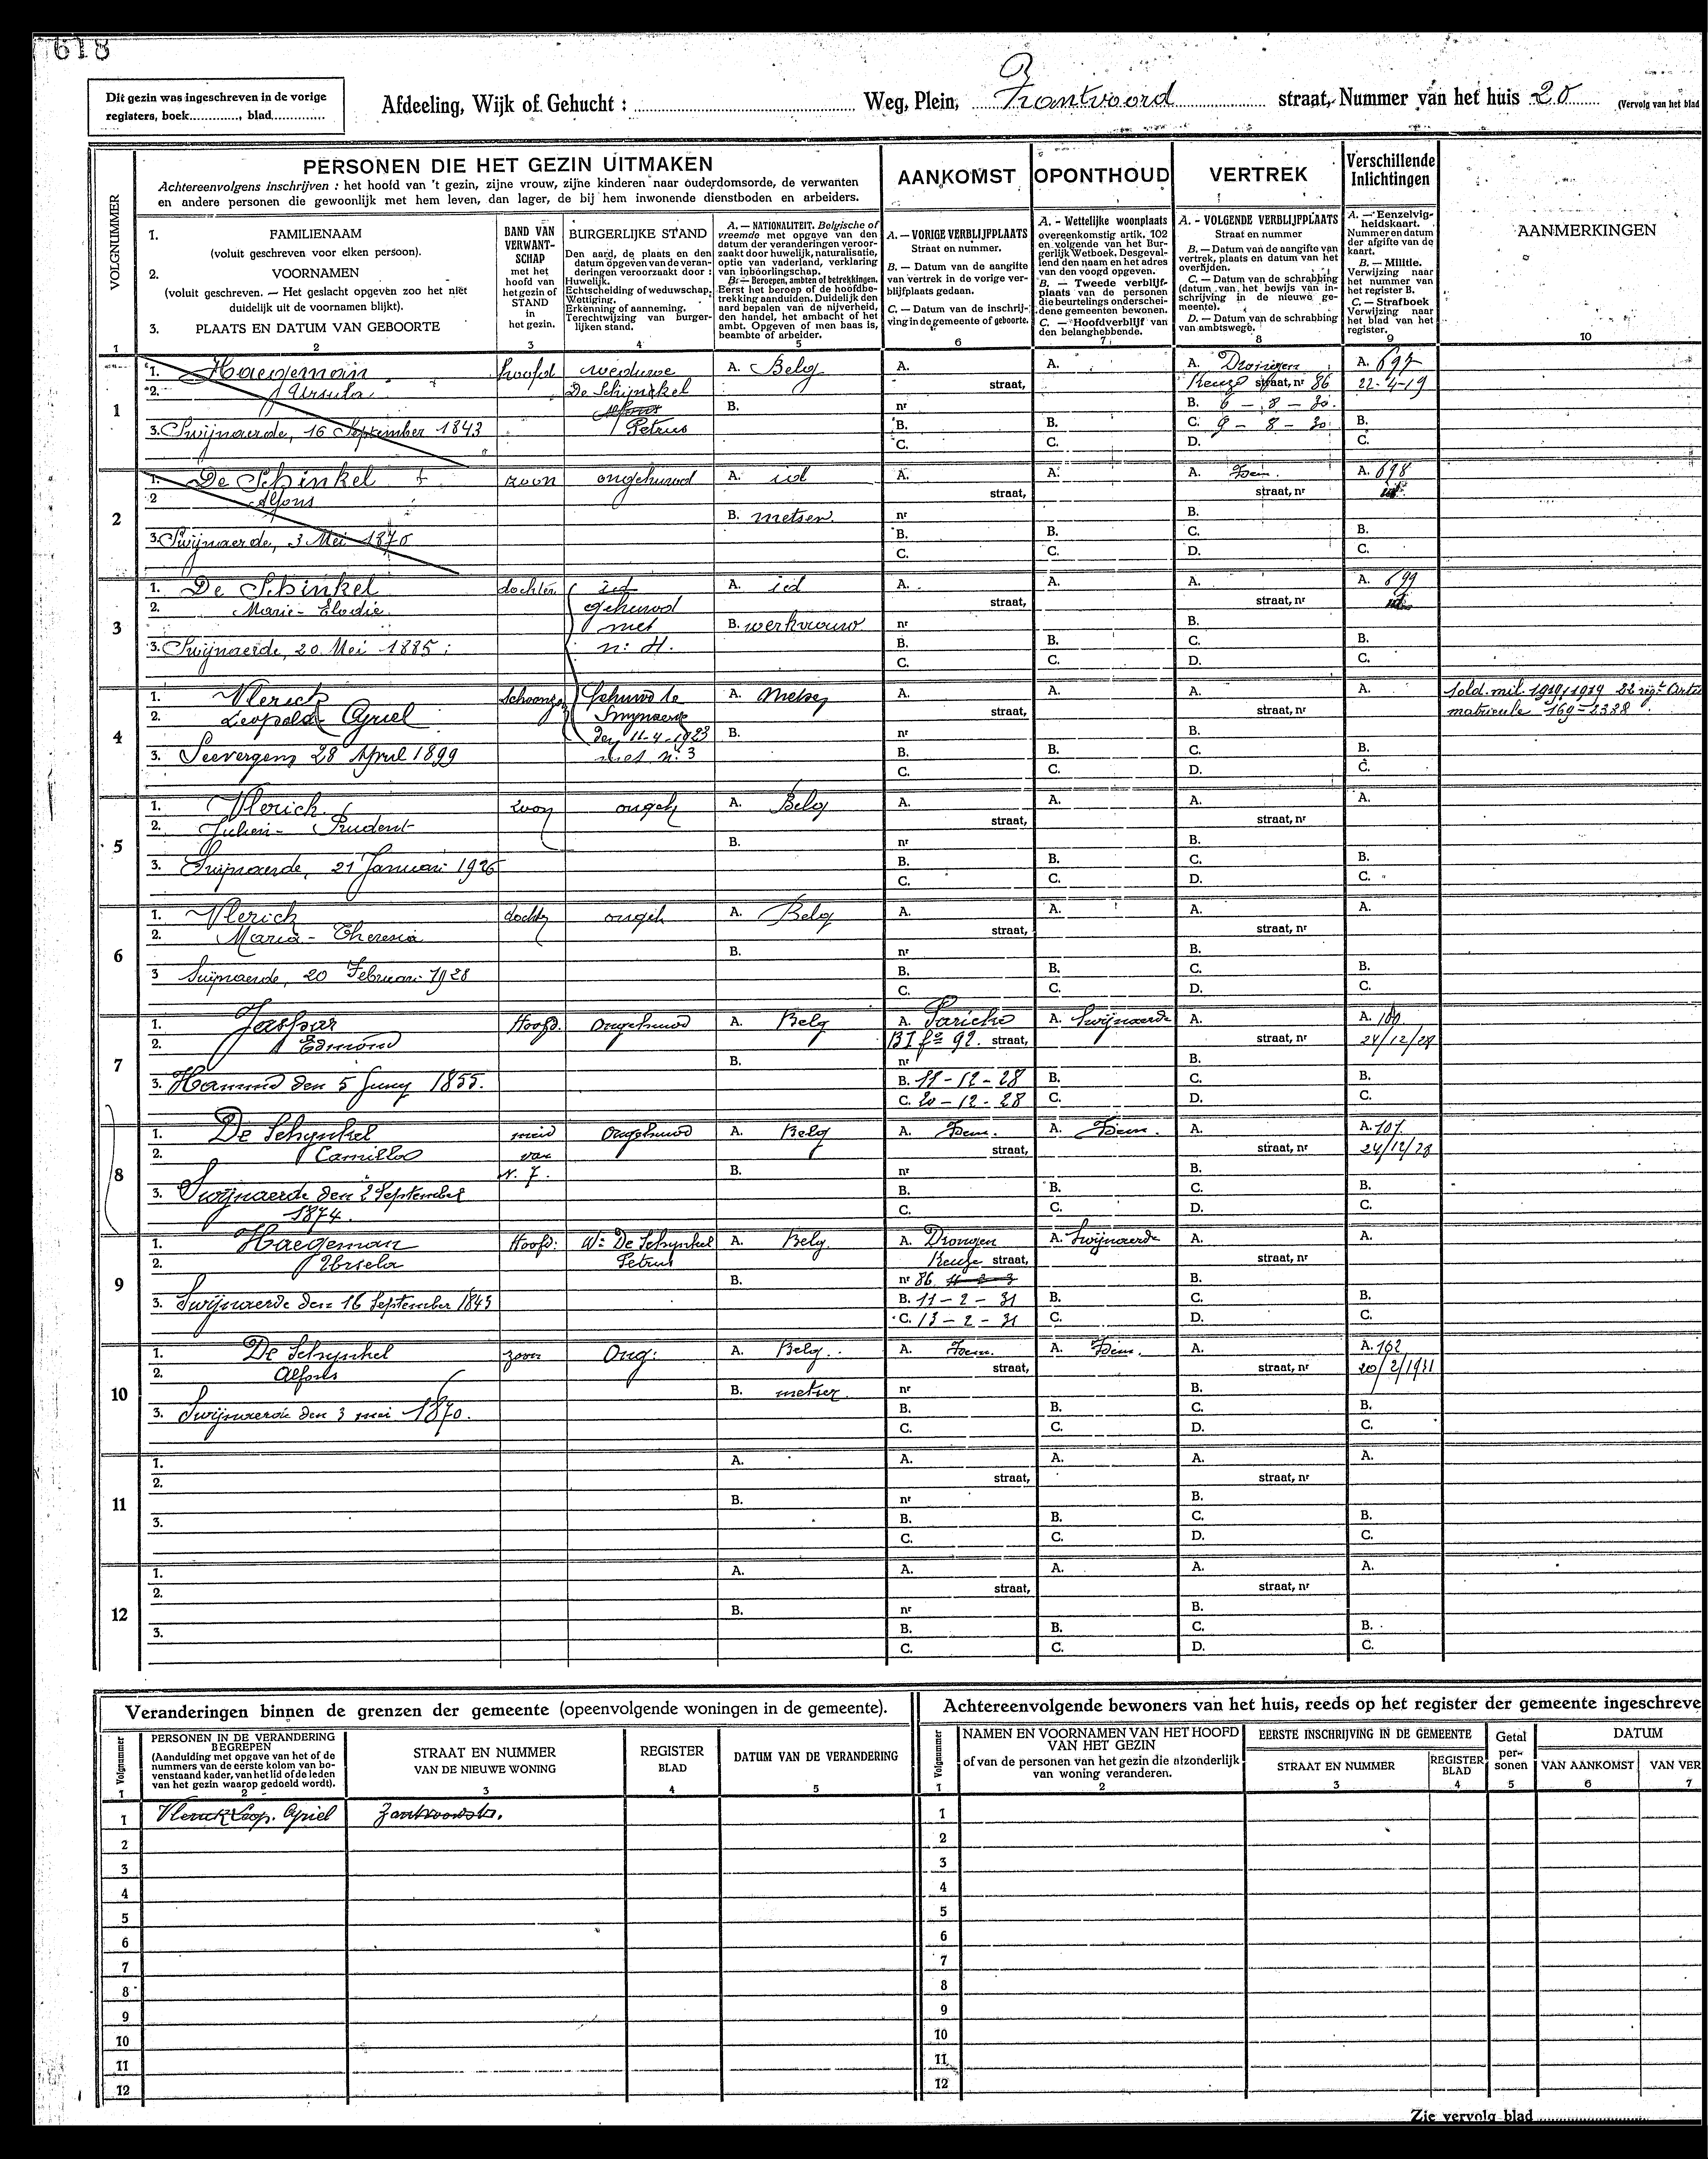 618
Dit gezin was ingeschreven in de vorige
registers, boek............, blad..............
Afdeeling, Wijk of Gehucht : .......... Weg, Plein, straat, Nummer van het huis 20 (Vervolg van het blad
VOLGNUMMER
PERSONEN DIE HET GEZIN UITMAKEN
Achtereenvolgens inschrijven : het hoofd van 't gezin, zijne vrouw, zijne kinderen naar ouderdomsorde, de verwanten
en andere personen die gewoonlijk met hem leven, dan lager, de bij hem inwonende dienstboden en arbeiders.
AANKOMST
OPONTHOUD
VERTREK
Verschillende
Inlichtingen
AANMERKINGEN
1. FAMILIENAAM
(voluit geschreven voor elken persoon).
2. VOORNAMEN
(voluit geschreven. — Het geslacht opgeven zoo het niet
duidelijk uit de voornamen blijkt).
3. PLAATS EN DATUM VAN GEBOORTE
BAND VAN
VERWANT-
SCHAP
met het
hoofd van
het gezin of
STAND
in
het gezin.
BURGERLIJKE STAND
Den aard, de plaats en den
datum opgeven van de veran-
deringen veroorzaakt door :
Huwelijk.
Echtscheiding of weduwschap.
Wettiging.
Erkenning of aanneming.
Terechtwijzing van burger-
lijken stand.
A. — NATIONALITEIT. Belgische of
vreemde met opgave van den
datum der veranderingen veroor-
zaakt door huwelijk, naturalisatie,
optie van vaderland, verklaring
van inboorlingschap.
B. — Beroepen, ambten of betrekkingen.
Eerst het beroep of de hoofdbe-
trekking aanduiden. Duidelijk den
aard bepalen van de nijverheid,
den handel, het ambacht of het
ambt. Opgeven of men baas is,
beambte of arbeider.
A. — VORIGE VERBLIJFPLAATS
Straat en nummer.
B. — Datum van de aangifte
van vertrek in de vorige ver-
blijfplaats gedaan.
C. — Datum van de inschrij-
ving in de gemeente of geboorte.
A. - Wettelijke woonplaats
overeenkomstig artik. 102
en volgende van het Bur-
gerlijk Wetboek. Desgeval-
lend den naam en het adres
van den voogd opgeven.
B. — Tweede verblijf-
plaats van de personen
die beurtelings onderschei-
dene gemeenten bewonen.
C. — Hoofdverblijf van
den belanghebbende.
A. - VOLGENDE VERBLIJFPLAATS
Straat en nummer
B. — Datum van de aangifte van
vertrek, plaats en datum van het
overlijden.
C. — Datum van de schrabbing
(datum van het bewijs van in-
schrijving in de nieuwe ge-
meente).
D. — Datum van de schrabbing
van ambtswege.
A. — Eenzelvig-
heidskaart.
Nummer en datum
der afgifte van de
kaart.
B. — Militie.
Verwijzing naar
het nummer van
het register B.
C. — Strafboek
Verwijzing naar
het blad van het
register.
1 2 3 4 5 6 7 8 9 10
1
1. Haegeman hoofd weduwe A. Belg A. A. A. Drongen A. 697
2. Ursula De Schijnckel straat, Keuze straat, nr 86 22-4-19
Alfons B. nr B. 6 - 8 - 30.
3. Swijnaerde, 16 September 1843 Petrus B. B. C. 9 - 8 - 30 B.
C. C. D. C.
2
1. De Schinkel zoon ongehuwd A. id A. A. A. Idem A. 698
2 Alfons straat, straat, nr id.
B. metser. nr B.
3. Swijnaerde, 3 Mei 1870 B. B. C. B.
C. C. D. C.
3
1. De Schinkel dochter id A. id A. A. A. A. 699
2. Marie-Elodie. gehuwd straat, straat, nr id.
met B. werkvrouw nr B.
3. Swijnaerde, 20 Mei 1885 n: 4. B. B. C. B.
C. C. D. C.
4
1. Vlerick Schoonz. Gehuwd te A. Metser A. A. A. A. Sold. mil. 1919/1919 22 regt
2. Leopold Cyriel Swynaerde straat, straat, nr matricule 169-2328
den 11-4-1923 B. nr B.
3. Seevergem 28 April 1899 met n: 3 B. B. C. B.
C. C. D. C.
5
1. Vlerick zoon ongeh A. Belg A. A. A. A.
2. Julien-Prudent straat, straat, nr
B. nr B.
3. Swijnaerde, 21 Januari 1926 B. B. C. B.
C. C. D. C.
6
1. Vlerick dochter ongeh A. Belg A. A. A. A.
2. Maria-Theresia straat, straat, nr
B. nr B.
3 Swijnaerde, 20 Februari 1928 B. B. C. B.
C. C. D. C.
7
1. Jaspar Hoofd. Ongehuwd A. Belg A. A. Swijnaerde A. A.
2. Edmond straat, straat, nr 24/12/28
B. nr B.
3. den 5 Juny 1855. B. 11-12-28 B. C. B.
C. 20-12-28 C. D. C.
8
1. De Schynkel meid Ongehuwd A. Belg A. Idem. A. Idem. A. A. 101
2. Camilla van straat, straat, nr 24/12/28
N. 7. B. nr B.
3. Swijnaerde den 2 September B. B. C. B.
1874. C. C. D. C.
9
1. Haegeman Hoofd: We De Schynkel A. Belg A. Drongen A. Swijnaerde A. A.
2. Ursela Petrus Keuze straat, straat, nr
B. nr 86 B.
3. Swijnaerde den 16 September 1843 B. 11 - 2 - 31 B. C. B.
C. 13 - 2 - 31 C. D. C.
10
1. De Schynkel zoon Ong: A. Belg. A. Idem. A. Idem. A. A. 162
2. Alfons straat, straat, nr 20/2/1931
B. metser. nr B.
3. Swijnaerde den 3 mei 1870. B. B. C. B.
C. C. D. C.
11
1. A. A. A. A. A.
2. straat, straat, nr
B. nr B.
3. B. B. C. B.
C. C. D. C.
12
1. A. A. A. A. A.
2. straat, straat, nr
B. nr B.
3. B. B. C. B.
C. C. D. C.
Veranderingen binnen de grenzen der gemeente (opeenvolgende woningen in de gemeente).
Volgnummer
PERSONEN IN DE VERANDERING
BEGREPEN
(Aanduiding met opgave van het of de
nummers van de eerste kolom van bo-
venstaand kader, van het lid of de leden
van het gezin waarop gedoeld wordt).
STRAAT EN NUMMER
VAN DE NIEUWE WONING
REGISTER
BLAD
DATUM VAN DE VERANDERING
1 2 3 4 5
1 Vlerick Leop. Cyriel Zantvoordstr.
2
3
4
5
6
7
8
9
10
11
12
Achtereenvolgende bewoners van het huis, reeds op het register der gemeente ingeschreve
Volgnummer
NAMEN EN VOORNAMEN VAN HET HOOFD
VAN HET GEZIN
of van de personen van het gezin die afzonderlijk
van woning veranderen.
EERSTE INSCHRIJVING IN DE GEMEENTE
STRAAT EN NUMMER
REGISTER
BLAD
Getal
per-
sonen
DATUM
VAN AANKOMST
VAN VER
1 2 3 4 5 6 7
1
2
3
4
5
6
7
8
9
10
11
12
Zie vervolg blad